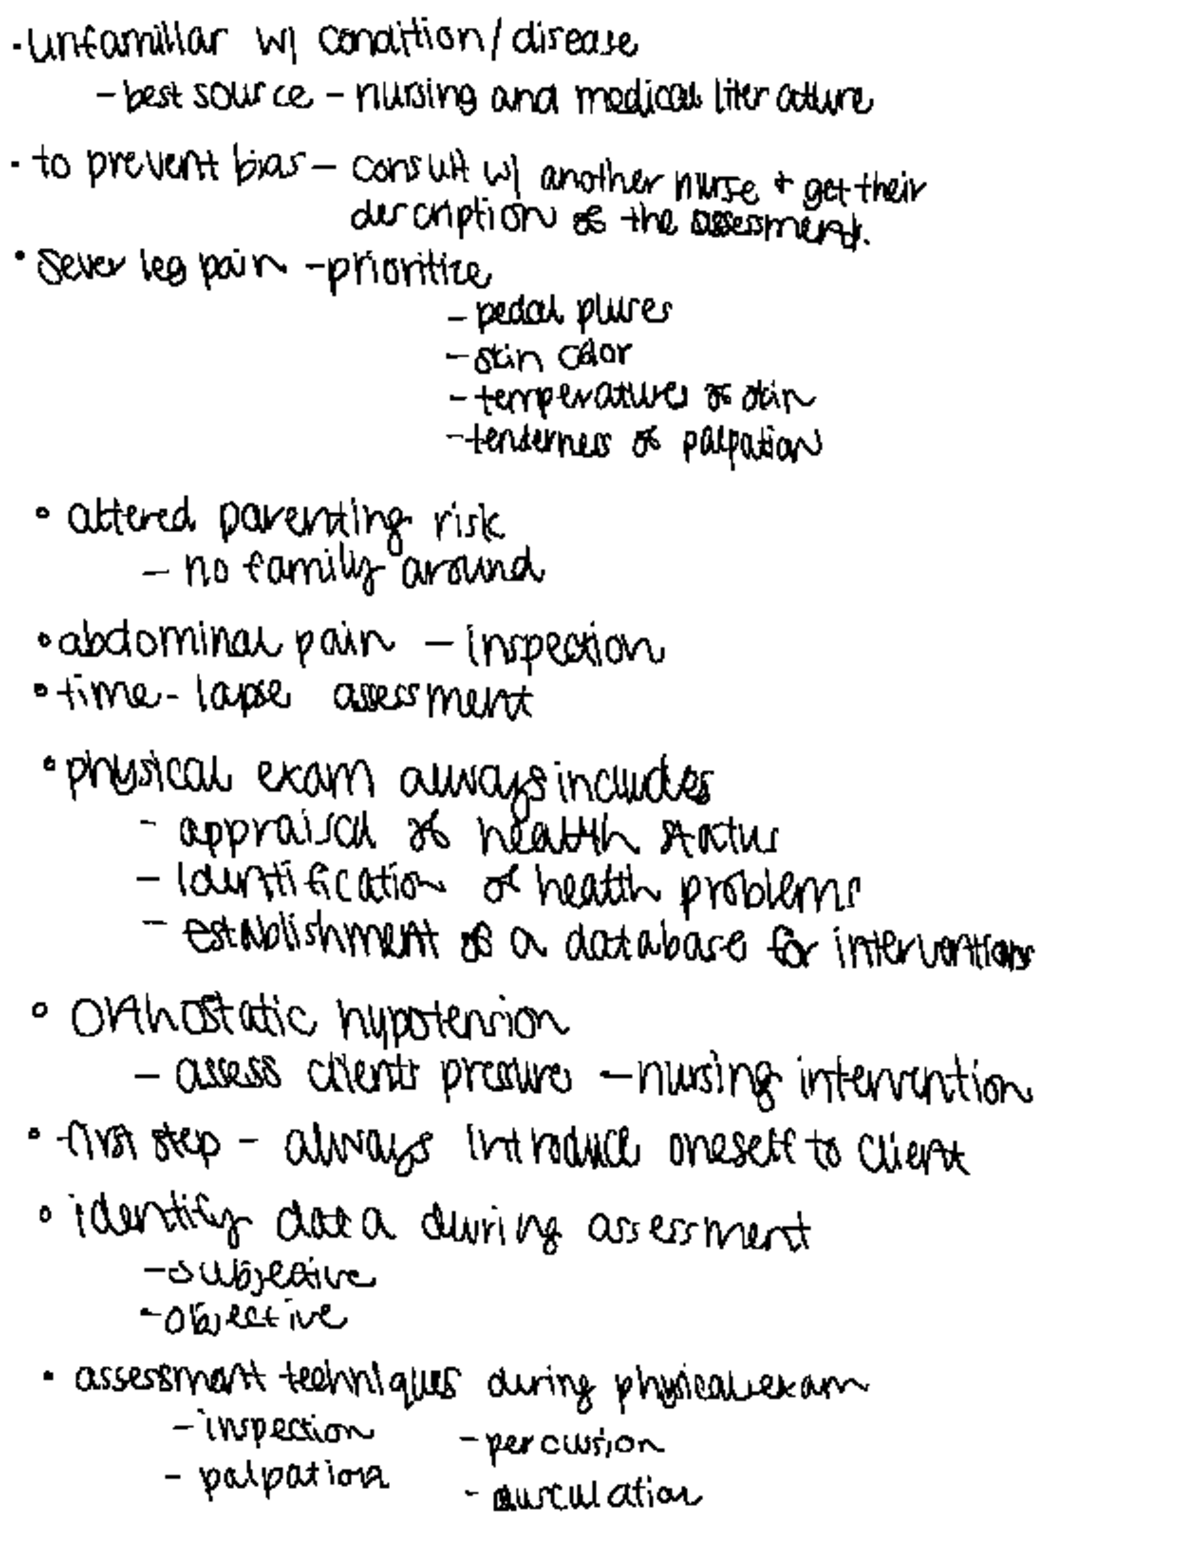 - unfamiliar w/ condition/disease
- best source - nursing and medical literature
- to prevent bias - consult w/ another nurse + get their
description of the assessment.
• sever leg pain - prioritize
- pedal pulses
- skin color
- temperatures of skin
- tenderness of palpation
• altered parenting risk
- no family around
• abdominal pain - inspection
• time-lapse assessment
• physical exam always includes
- appraisal of health status
- identification of health problems
- establishment of a database for interventions
• orthostatic hypotension
- assess clients pressure - nursing intervention
• first step - always introduce oneself to client
• identify data during assessment
- subjective
- objective
• assessment techniques during physical exam
- inspection - percussion
- palpation - auscultation